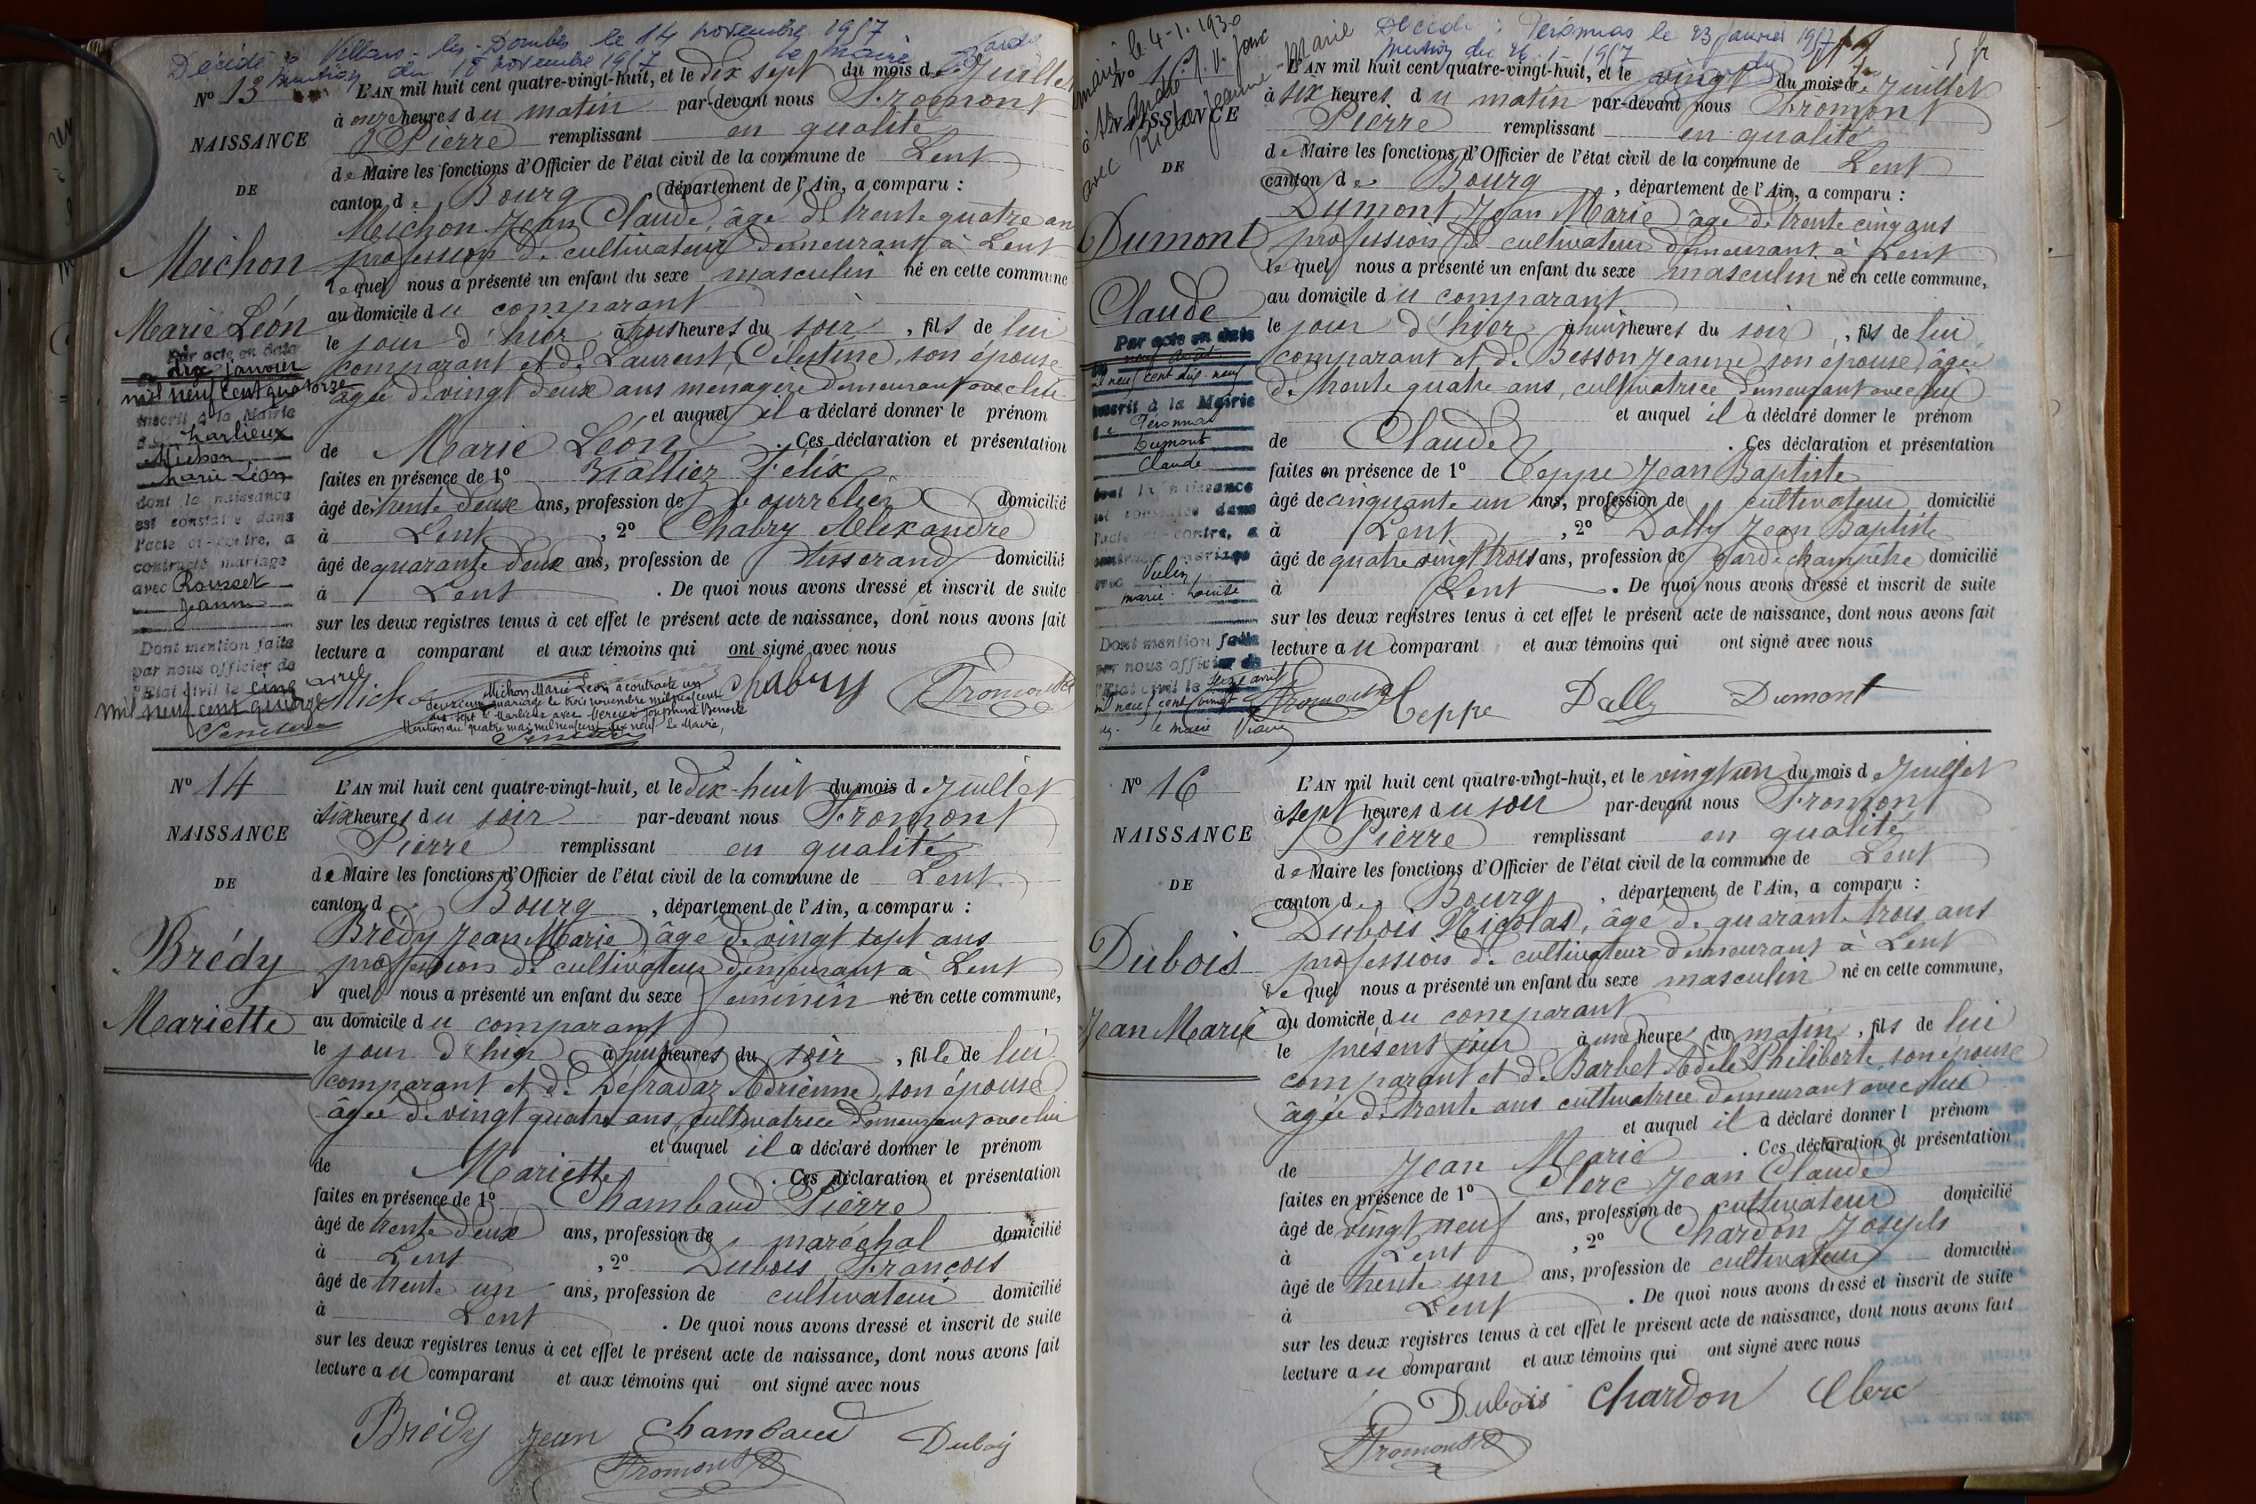 Décédé à Villars-les-Dombes le 14 novembre 1957
mention du 18 novembre 1957 le maire
N° 13
NAISSANCE
DE
Michon
Marie Léon
Par acte en date
du dix janvier
mil neuf cent quatorze
inscrit à la Mairie
de Charlieux
Michon
Marie Léon
dont la naissance
est constatée dans
l'acte ci-contre, a
contracté mariage
avec Rousset
Jeanne
Dont mention faite
par nous officier de
l'Etat civil le cinq avril
mil neuf cent quatorze
L'AN mil huit cent quatre-vingt-huit, et le dix sept du mois de Juillet
à onze heures du matin par-devant nous Fromont
Pierre remplissant en qualité
de Maire les fonctions d'Officier de l'état civil de la commune de Lent
canton de Bourg, département de l'Ain, a comparu :
Michon Jean Claude, âgé de trente quatre ans
profession de cultivateur demeurant à Lent
Lequel nous a présenté un enfant du sexe masculin né en cette commune
au domicile du comparant
le jour d'hier à trois heures du soir, fils de lui
comparant et de Laurent Célestine, son épouse
âgée de vingt deux ans ménagère demeurant avec lui
et auquel il a déclaré donner le prénom
de Marie Léon. Ces déclaration et présentation
faites en présence de 1° Biallier Félix
âgé de trente deux ans, profession de bourrelier domicilié
à Lent, 2° Chabry Alexandre
âgé de quarante deux ans, profession de tisserand domicilié
à Lent. De quoi nous avons dressé et inscrit de suite
sur les deux registres tenus à cet effet le présent acte de naissance, dont nous avons fait
lecture a comparant et aux témoins qui ont signé avec nous
Michon Chabry Fromont
Michon Marie Léon a contracté un
deuxième mariage le trois novembre mil neuf cent
dix-sept à Charlieux avec Mercier Joséphine Benoîte
Mention du quatre mai mil neuf cent dix neuf Le Maire,
N° 14
NAISSANCE
DE
Brédy
Mariette
L'AN mil huit cent quatre-vingt-huit, et le dix-huit du mois de Juillet
à six heures du soir par-devant nous Fromont
Pierre remplissant en qualité
de Maire les fonctions d'Officier de l'état civil de la commune de Lent
canton d Bourg, département de l'Ain, a comparu :
Brédy Jean Marie âgé de vingt sept ans
profession de cultivateur demeurant à Lent
quel nous a présenté un enfant du sexe féminin né en cette commune,
au domicile du comparant
le jour d'hier à huit heures du soir, fille de lui
comparant et de Défradaz Adrienne, son épouse
âgée de vingt quatre ans, cultivatrice demeurant avec lui
et auquel il a déclaré donner le prénom
de Mariette. Ces déclaration et présentation
faites en présence de 1° Chambaud Pierre
âgé de trente deux ans, profession de maréchal domicilié
à Lent, 2° Dubois François
âgé de trente un ans, profession de cultivateur domicilié
à Lent. De quoi nous avons dressé et inscrit de suite
sur les deux registres tenus à cet effet le présent acte de naissance, dont nous avons fait
lecture au comparant et aux témoins qui ont signé avec nous
Brédy Jean Chambaud Dubois
Fromont
Décédé à Péronnas le 23 janvier 1957
mention du 26.1.1957
marié le 4-1-1930
avec Jeanne-Marie
N°
NAISSANCE
DE
Dumont
Claude
Par acte en date
du neuf avril
mil neuf cent dix neuf
inscrit à la Mairie
de Péronnas
Dumont
Claude
dont la naissance
est constatée dans
l'acte ci-contre, a
contracté mariage
avec Vulin
Marie Louise
Dont mention faite
par nous officier de
l'Etat civil le seize avril
mil neuf cent vingt
le maire
L'AN mil huit cent quatre-vingt-huit, et le vingt du mois de Juillet
à six heures du matin par-devant nous Fromont
Pierre remplissant en qualité
de Maire les fonctions d'Officier de l'état civil de la commune de Lent
canton de Bourg, département de l'Ain, a comparu :
Dumont Jean Marie âgé de trente cinq ans
profession de cultivateur demeurant à Lent
lequel nous a présenté un enfant du sexe masculin né en cette commune,
au domicile du comparant
le jour d'hier à huit heures du soir, fils de lui
comparant et de Besson Jeanne son épouse âgée
de trente quatre ans, cultivatrice demeurant avec lui
et auquel il a déclaré donner le prénom
de Claude. Ces déclaration et présentation
faites en présence de 1° Ceppe Jean Baptiste
âgé de cinquante un ans, profession de cultivateur domicilié
à Lent, 2° Dally Jean Baptiste
âgé de quatre vingt trois ans, profession de garde champêtre domicilié
à Lent. De quoi nous avons dressé et inscrit de suite
sur les deux registres tenus à cet effet le présent acte de naissance, dont nous avons fait
lecture au comparant et aux témoins qui ont signé avec nous
Fromont Ceppe Dally Dumont
N° 16
NAISSANCE
DE
Dubois
Jean Marie
L'AN mil huit cent quatre-vingt-huit, et le vingt un du mois de Juillet
à sept heures du soir par-devant nous Fromont
Pierre remplissant en qualité
de Maire les fonctions d'Officier de l'état civil de la commune de Lent
canton de Bourg, département de l'Ain, a comparu :
Dubois Nicolas, âgé de quarante trois ans
profession de cultivateur demeurant à Lent
lequel nous a présenté un enfant du sexe masculin né en cette commune,
au domicile du comparant
le présent jour à une heure du matin, fils de lui
comparant et de Barbet Adèle Philiberte son épouse
âgée de trente ans cultivatrice demeurant avec lui
et auquel il a déclaré donner l prénom
de Jean Marie. Ces déclaration et présentation
faites en présence de 1° Clerc Jean Claude
âgé de vingt neuf ans, profession de cultivateur domicilié
à Lent, 2° Chardon Joseph
âgé de trente un ans, profession de cultivateur domicilié
à Lent. De quoi nous avons dressé et inscrit de suite
sur les deux registres tenus à cet effet le présent acte de naissance, dont nous avons fait
lecture au comparant et aux témoins qui ont signé avec nous
Dubois Chardon Clerc
Fromont